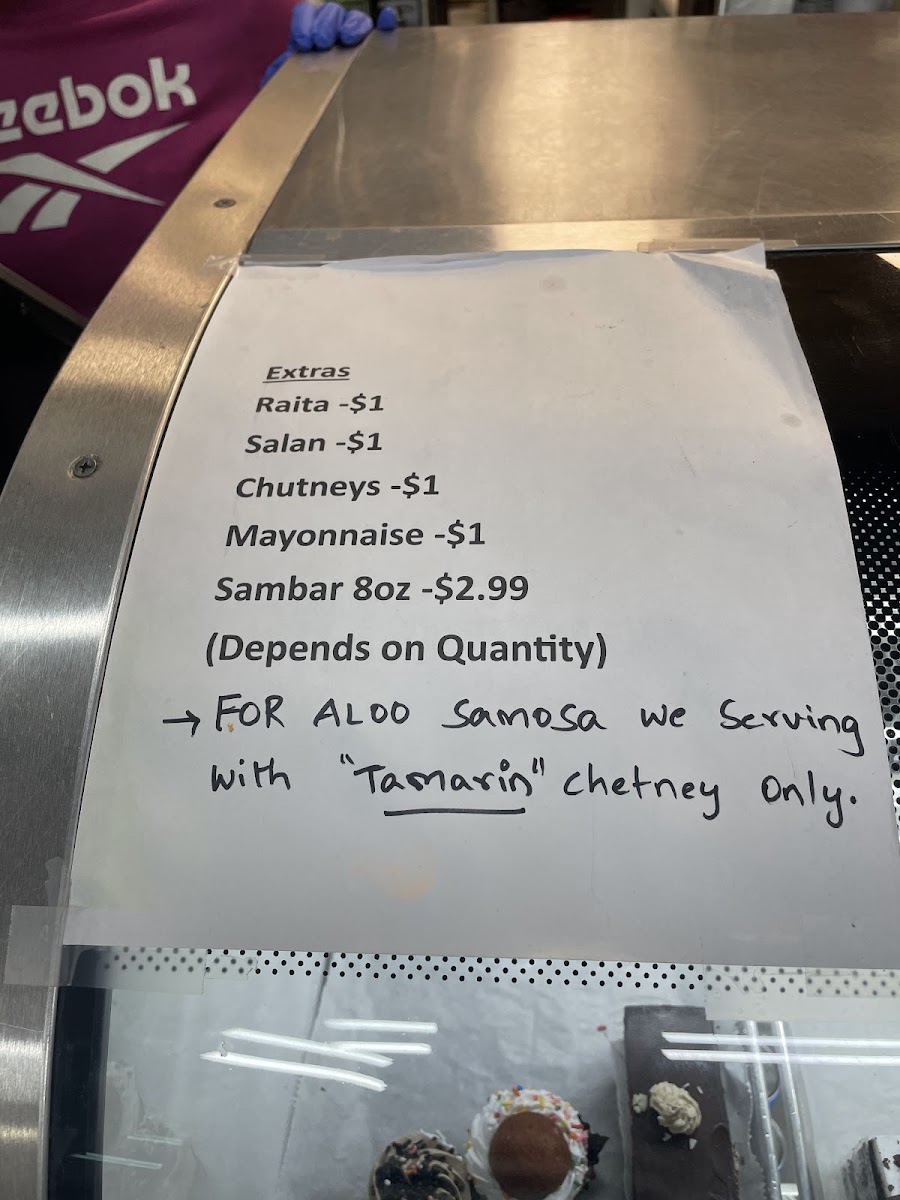 eebok
Extras
Raita -$1
Salan -$1
Chutneys -$1
Mayonnaise -$1
Sambar 8oz -$2.99
(Depends on Quantity)
→ FOR ALOO Samosa we Serving
with "Tamarin" chetney only.